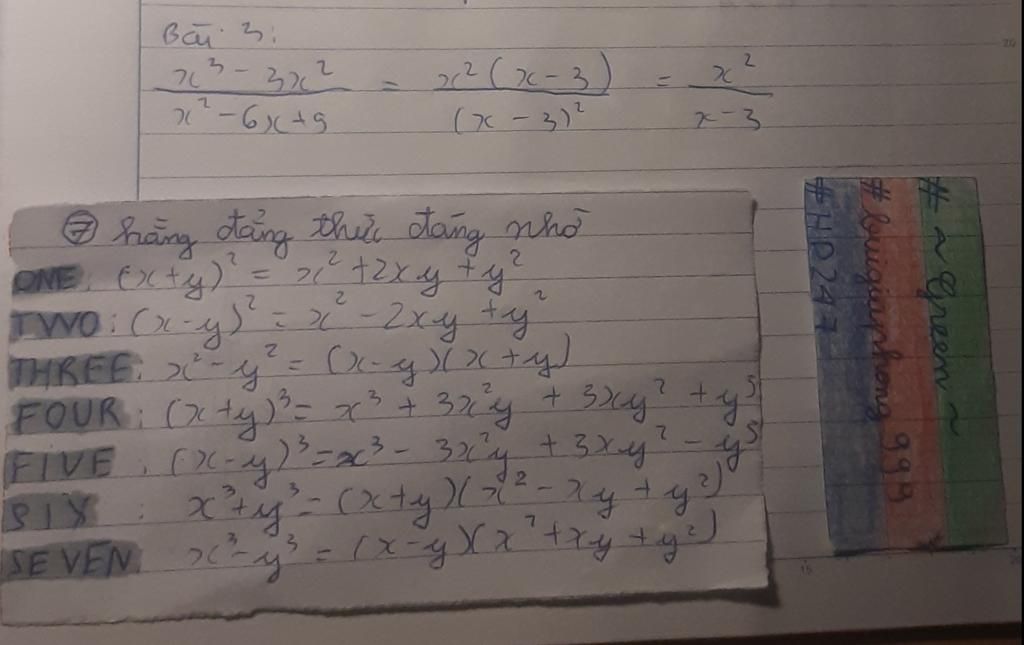 Bài 3:
x³ - 3x² / x² - 6x + 9 = x² (x - 3) / (x - 3)² = x² / x - 3
⑦ hằng đẳng thức đáng nhớ
ONE: (x+y)² = x² + 2xy + y²
TWO: (x-y)² = x² - 2xy + y²
THREE: x² - y² = (x-y)(x+y)
FOUR: (x+y)³ = x³ + 3x²y + 3xy² + y³
FIVE: (x-y)³ = x³ - 3x²y + 3xy² - y³
SIX: x³+y³ = (x+y)(x² - xy + y²)
SEVEN: x³-y³ = (x-y)(x² + xy + y²)
# ~ Green ~
#HD247
20
15